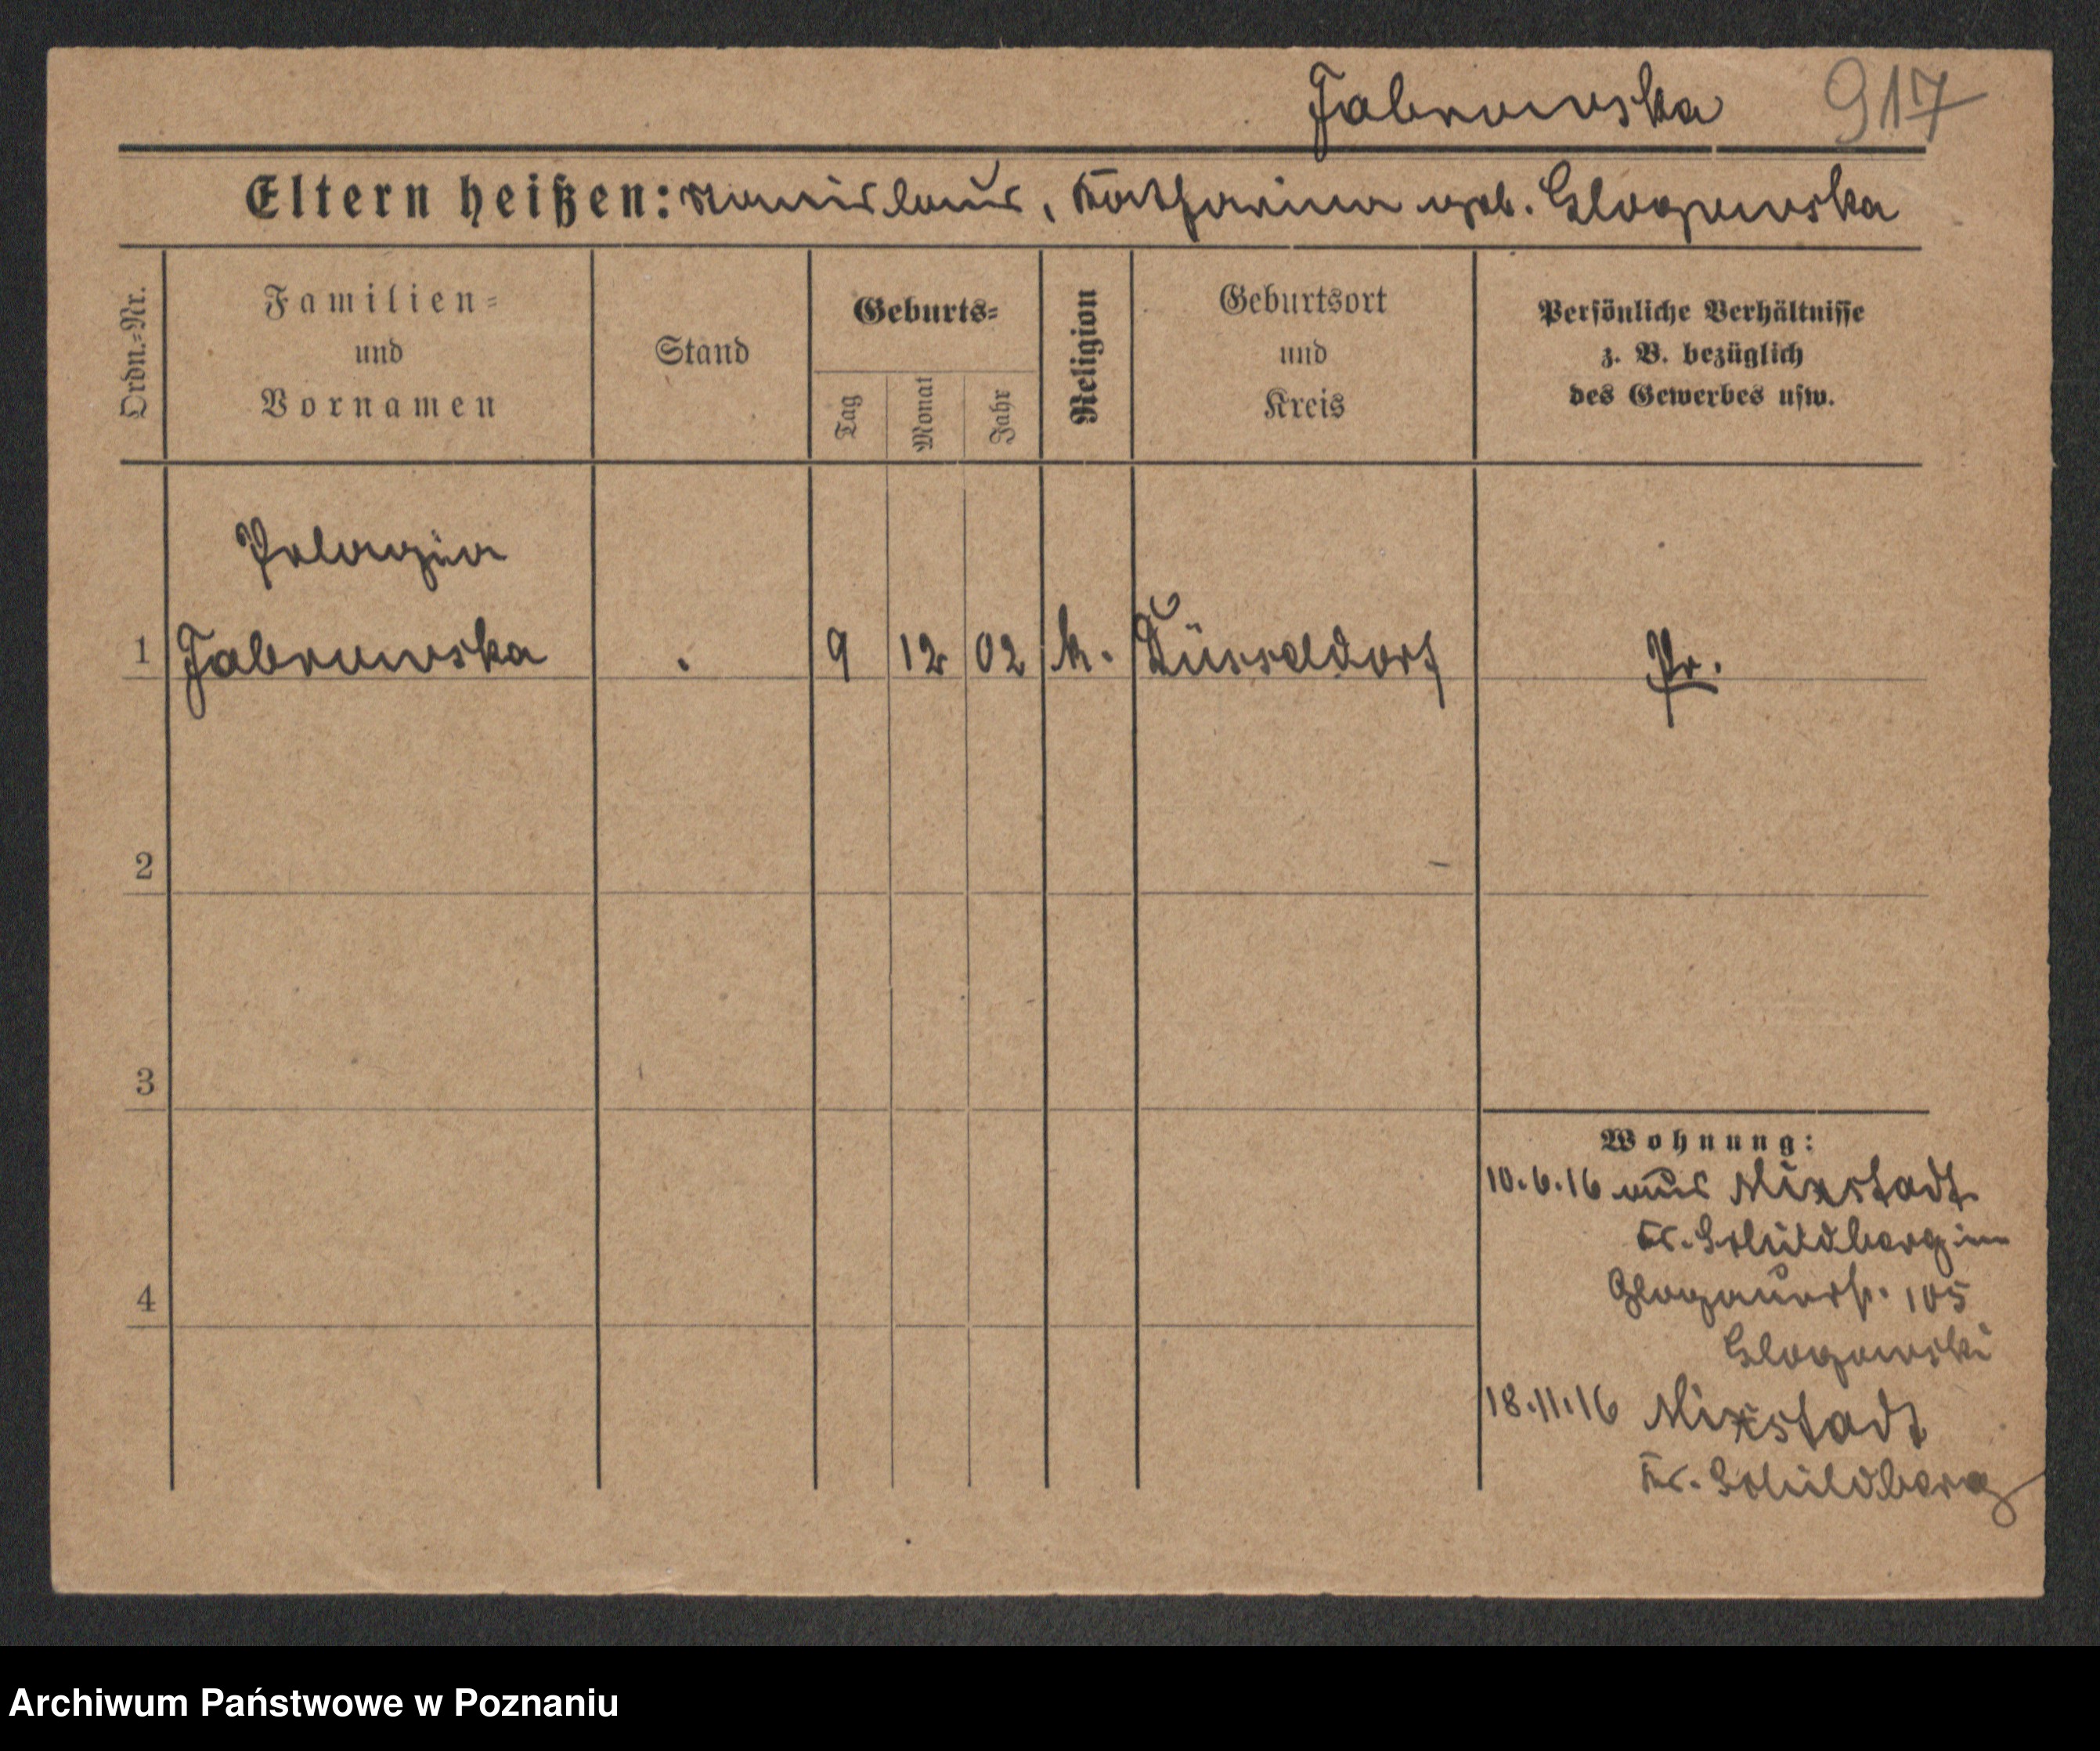 Fabrowska 917
Eltern heißen: Stanislaus, Katharina geb. Glogowska
Ordn.-Nr.
Familien-
und
Vornamen
Stand
Geburts-
Tag
Monat
Jahr
Religion
Geburtsort
und
Kreis
Persönliche Verhältnisse
z. B. bezüglich
des Gewerbes usw.
Pelagia
1 Fabrowska . 9 12 02 k. Düsseldorf Pr.
2
3
4
Wohnung:
10.6.16 aus Mixstadt
Kr. Schildberg in
Glogauerstr. 105
Glogowski
18.11.16 Mixstadt
Kr. Schildberg
Archiwum Państwowe w Poznaniu